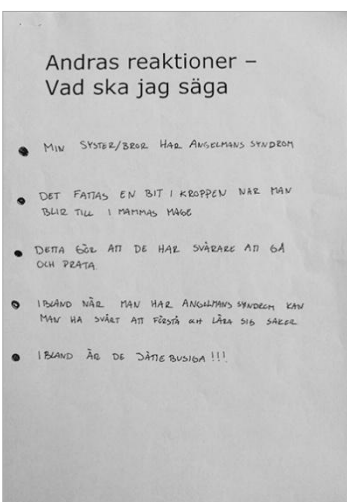 Andras reaktioner –
Vad ska jag säga
MIN SYSTER/BROR HAR ANGELMANS SYNDROM
DET FATTAS EN BIT I KROPPEN NÄR MAN
BLIR TILL I MAMMAS MAGE
DETTA GÖR ATT DE HAR SVÅRARE ATT GÅ
OCH PRATA.
IBLAND NÄR MAN HAR ANGELMANS SYNDROM KAN
MAN HA SVÅRT ATT FÖRSTÅ OCH LÄRA SIG SAKER
IBLAND ÄR DE JÄTTEBUSIGA!!!